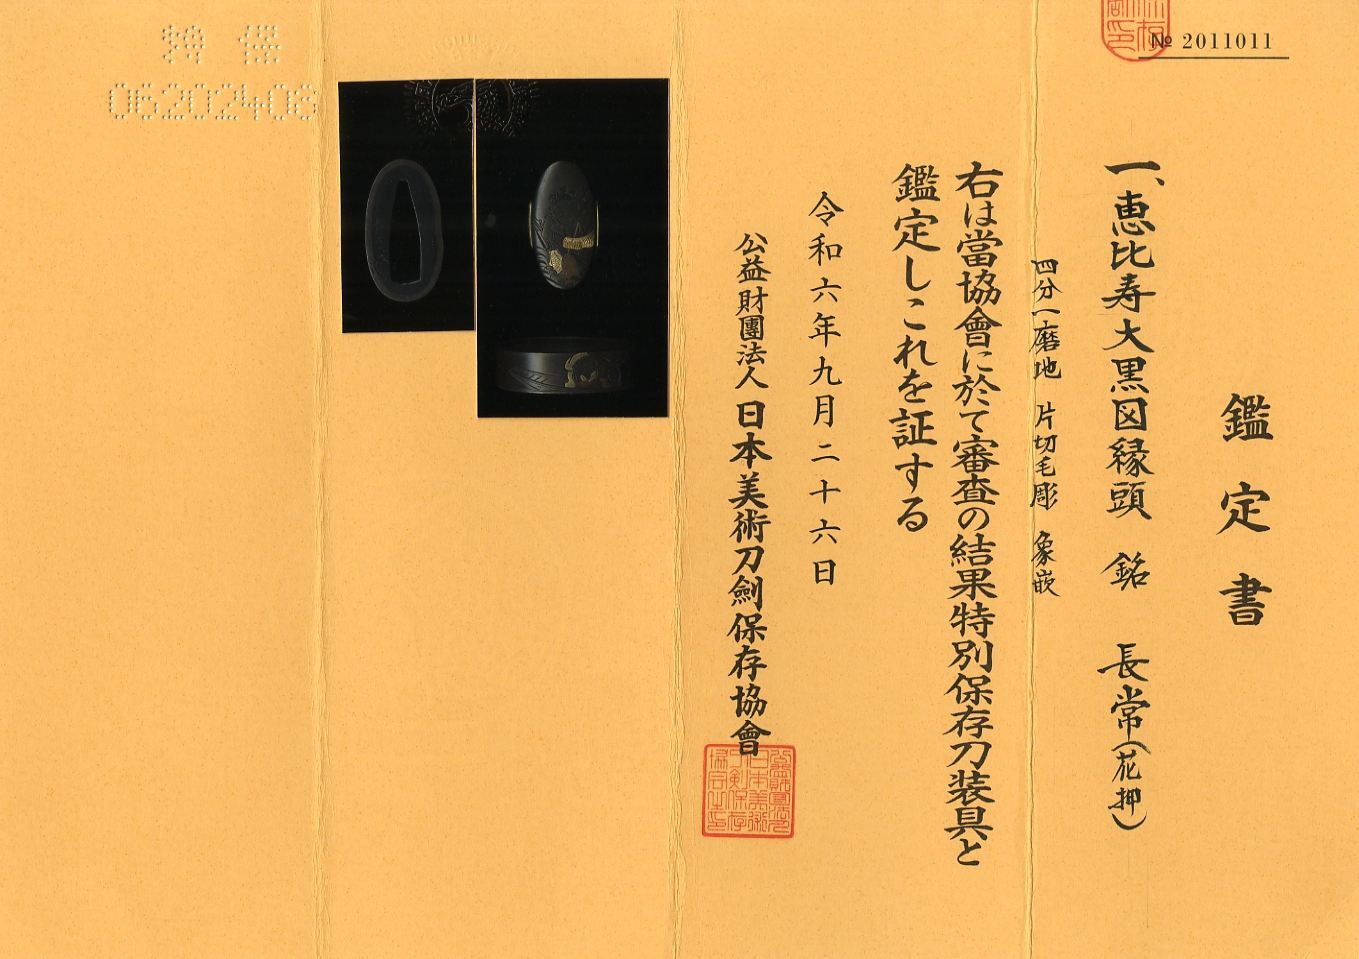 № 2011011
鑑定書
一、恵比寿大黒図縁頭 銘 長常(花押)
四分一磨地 片切毛彫 象嵌
右は當協會に於て審査の結果特別保存刀装具と
鑑定しこれを証する
令和六年九月二十六日
公益財團法人日本美術刀劍保存協會